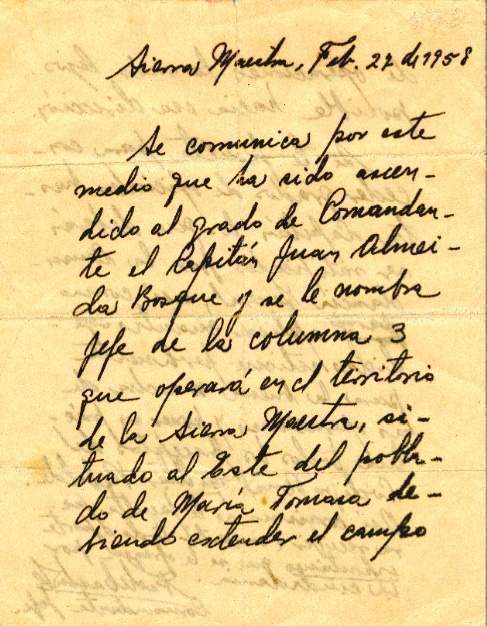 Sierra Maestra, Feb. 27 de 1958
Se comunica por este
medio que ha sido ascen-
dido al grado de Comandan-
te el Capitán Juan Almei-
da Bosque y se le nombra
Jefe de la columna 3
que operará en el territorio
de la Sierra Maestra, si-
tuado al Este del pobla-
do de María Tomasa de-
biendo extender el campo